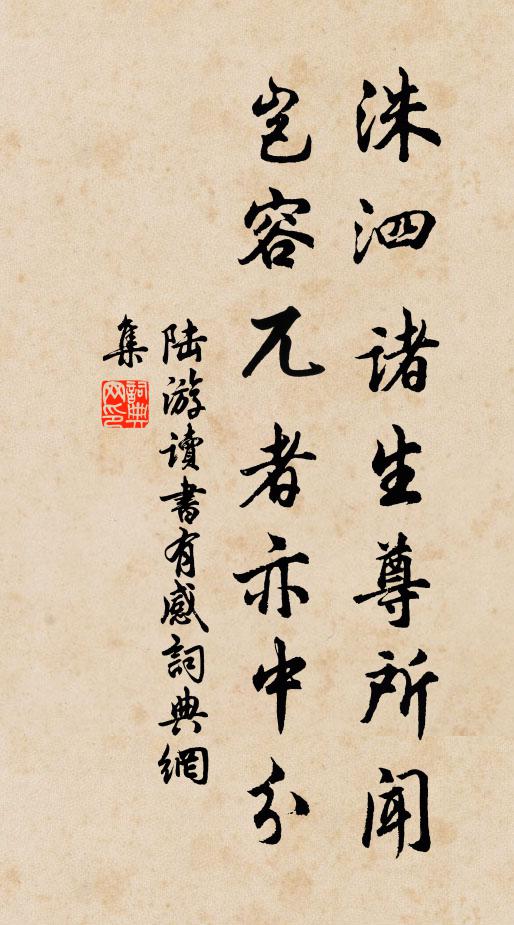 洙泗诸生尊所闻
岂容兀者亦中分
陆游讀書有感詞典網
集
詞典
网印